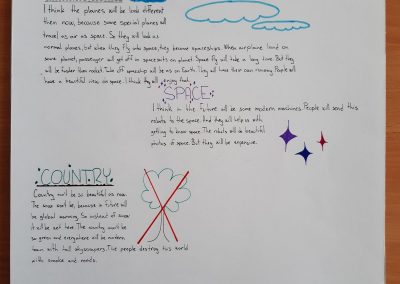 I think the planes will be look different
then now, because some special planes will
travel as air as space. So they will look as
normal planes, but when they fly who space, they become spaceships. When airplane land on
some planet, passenger will get off in space suits on planet. Space fly will take a long time. But they
will be faster then rocket. Take off spaceship will be as on Earth. They will have their own runway. People will
have a beautiful view on space. I think they will enjoy food.
SPACE
I think in the future will be some modern machines. People will send this
robots to the space. And they will help us with
getting to know space. The robots will do beautiful
photos of space. But they will be expensive.
COUNTRY
Country won't be so beautiful as now.
The snow won't be, because in future will
be global warming. So instead of snow
it will be wet here. The country won't be
so green and everywhere will be modern
town with tall skyscrapers. The people destroy this world
with smoke and